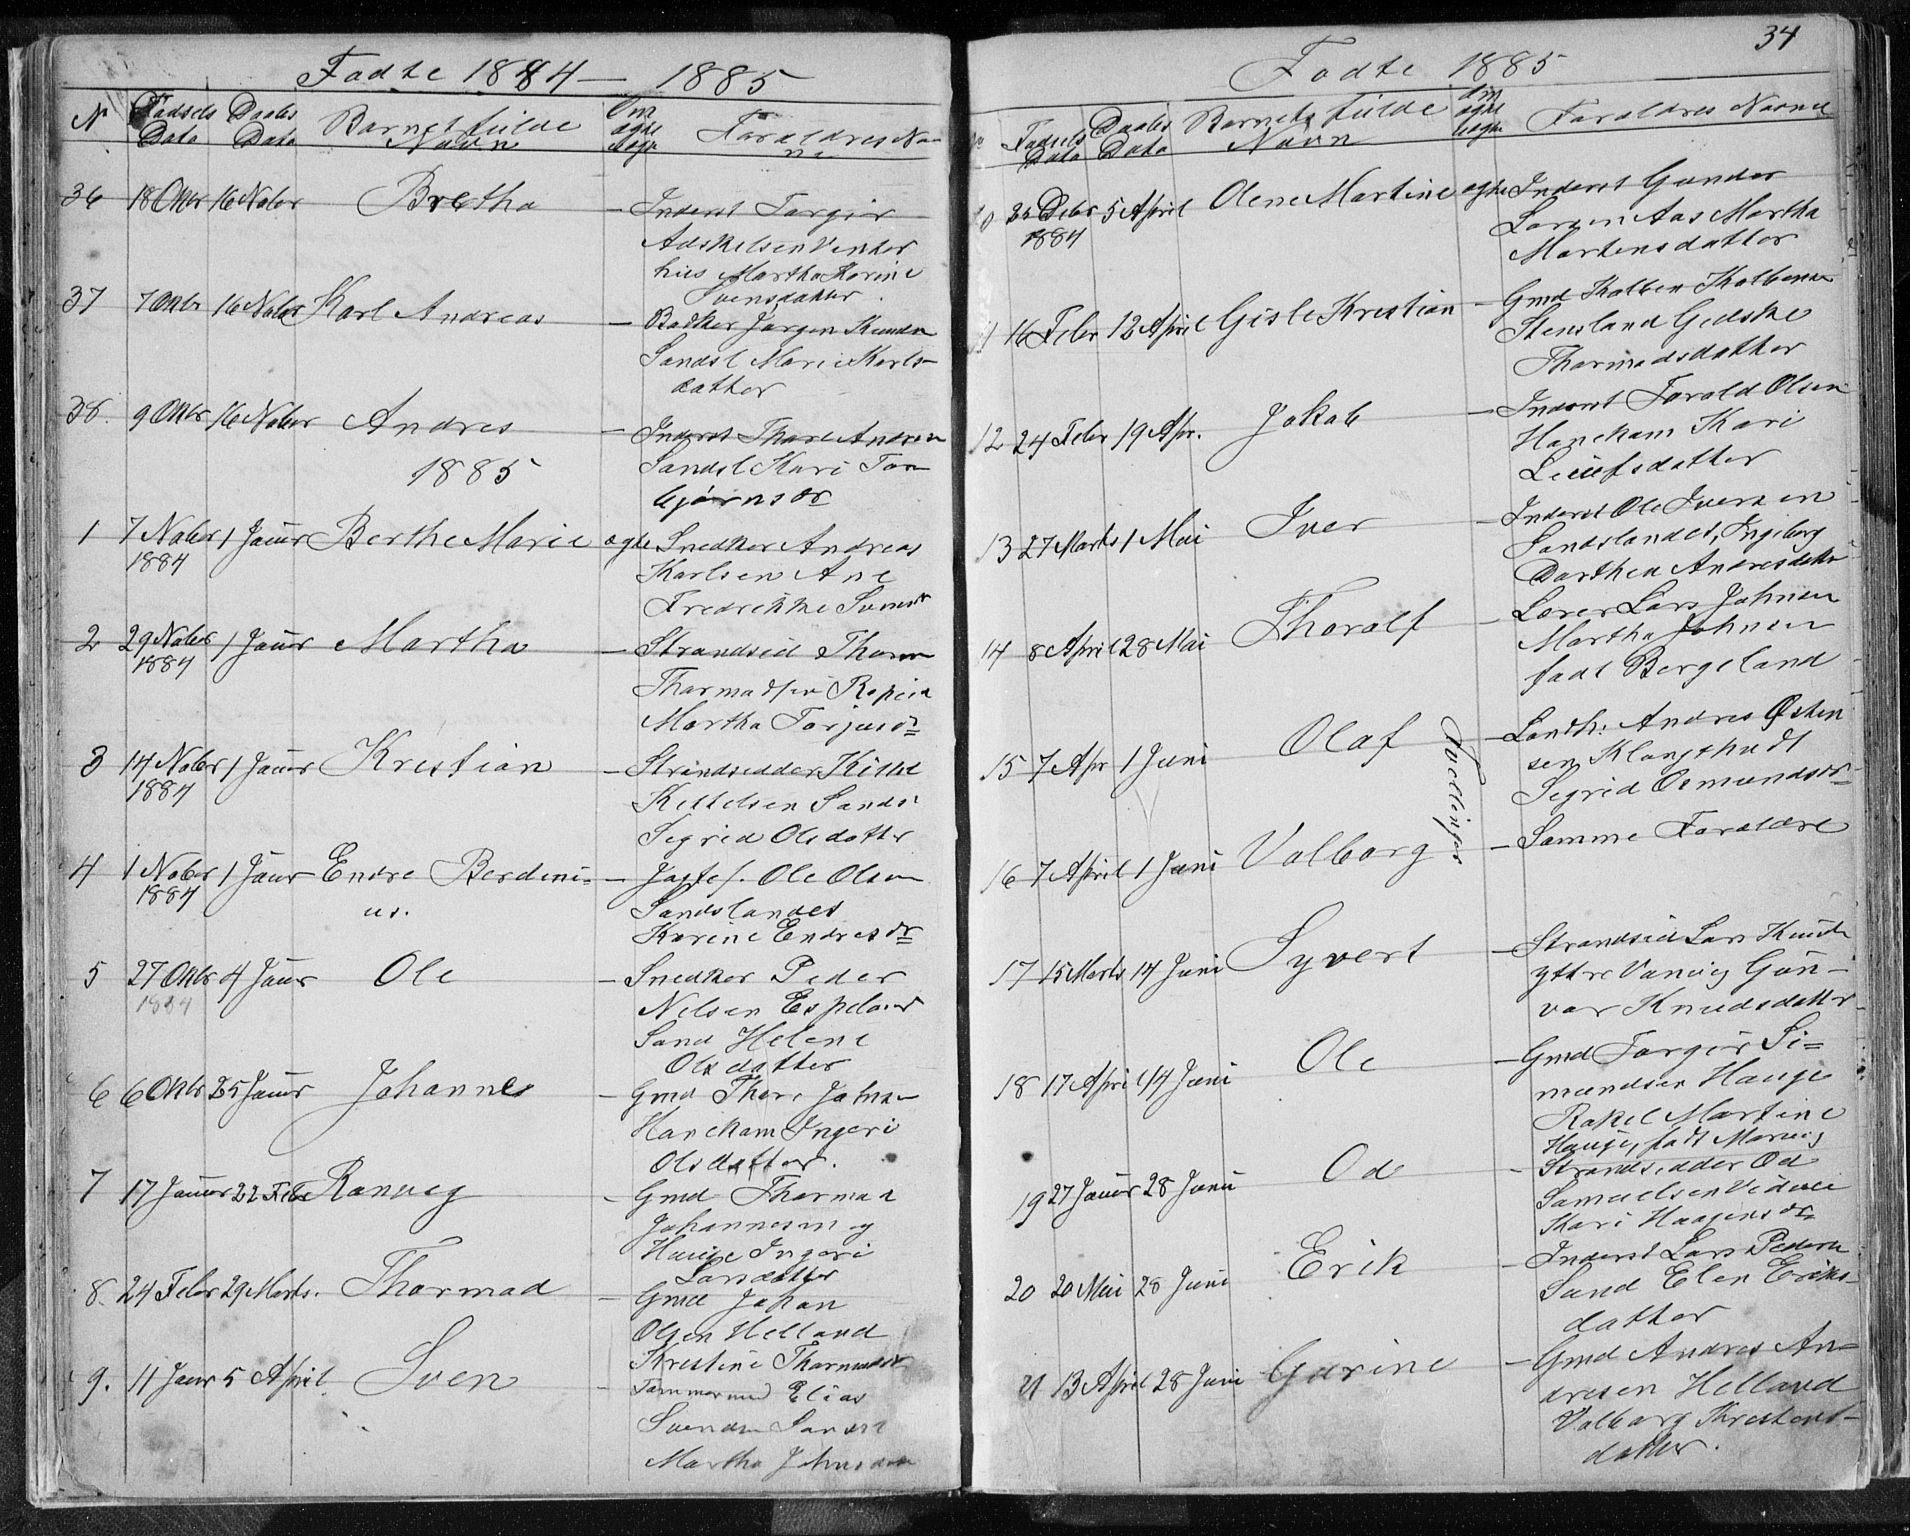 Fødte 1884 — 1885
N Fødsels Data Daabs Data Barnets fulde Navn Om ægte Forældres Navne
36 18 Oktbr 16 Nober Bretha — Inderst Torgier
Adskelsen Vinter
hus Martha Karine
Svensdatter.
37 7 Oktbr 16 Nober Karl Andreas — Bødker Jørgen Knudsn
Sandsl Marie Karls-
datter
38. 9 Oktbr 16 Nober Andres — Inderst Thore Andresn
Sandsl Kari Tor
bjørnsdr
1885
1 7 Nober 1884 1 Janur Berthe Marie ægte Snedker Andreas
Karlsen Ane
Fredrikke Svensdr
2 29 Nober 1884 1 Janur Martha — Strandsid Thorm
Thormodsen
Martha Torjusdr
3 14 Nober 1884 1 Janur Kristian — Strandsidder Kittel
Kittelsen Sandsl
Sigrid Olsdatter
4 1 Nober 1884 1 Janur Endre Berdini-
us. — Ole Olsen
Sandslandet
Karine Endresdr
5 27 Oktbr 1884 4 Janur Ole — Snedker Peder
Nelsen Espeland
Sand Helene
Olsdatter
6 6 Oktbr 25 Janur Johannes — Gmd Thore Johnsen
Haneham Ingeri
Olsdatter.
7 17 Janur 22 Febr Ranveg — Gmd Thormod
Johannesen og
Hauge Ingeri
Larsdatter
8. 24 Febr 29 Marts. Thormod — Gmd Johan
Olsen Helland
Kristine Thormodsdr
9. 11 Janr 5 April Sven — Tømmermd Elias
Svendsn Sandsl
Martha Johnsdatr
34
Fødte 1885
Fødsels Data Daabs Data Barnets fulde Navn Om ægte uægte Forældres Navne
10 25 Debr 1884 5 April Olene Martine ægte Inderst Gunder
Larsen Aas Martha
Mortensdatter
11 16 Febr 12 April Gisle Kristian — Gmd Kolben Kolbensen
Stensland Gidske
Thormodsdatter
12 24 Febr 19 Apr. Jakob — Inderst Torold Olsen
Haneham Kari
Leiufsdatter
13 27 Marts 1 Mai Iver — Inderst Ole Iversen
Sandslandet, Ingeborg
Dorthea Andresdatter
14 8 April 28 Mai Thoralf — Lærer Lars Johnsen
Martha Johnsen
født Bergeland
15 7 Apr 1 Juni Olaf Tvelinger — Landh: Andres Østen
sen Klungtvedt
Sigrid Osmundsdr
16 7 April 1 Juni Valborg — Samme Forældre
17 15 Marts 14 Juni Syvert — Strandsid Lars Knuds
yttre Vanvig Gun-
vor Knudsdatter
18 17 April 14 Juni Ole — Gmd Torgier Si=
mundsen Hauge
Rakel Martine
Hauge, født Marvig
19 27 Janur 28 Juni Od — Strandsidder Od
Samuelsen Vidvei
Kari Haagensdr
20 20 Mai 28 Juni Erik — Inderst Lars Pedersn
Sand Elen Eriks-
datter
21 13 April 28 Juni Gurine — Gmd Andres An-
dresen Helland
Valborg Kristens-
datter.